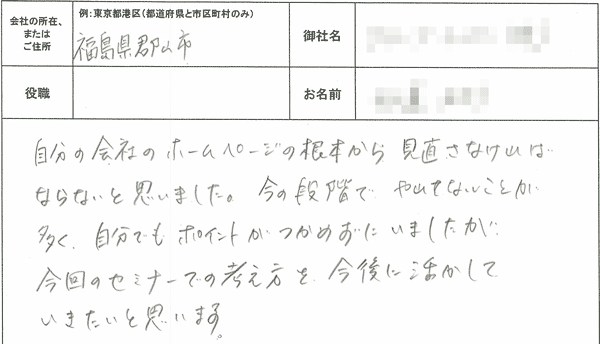 会社の所在、
または
ご住所
例:東京都港区(都道府県と市区町村のみ)
福島県郡山市
御社名
役職
お名前
自分の会社のホームページの根本から 見直さなければ
ならないと思いました。今の段階で やれてないことが
多く、自分でもポイントがつかめずにいましたが
今回のセミナーでの考え方を、今後に活かして
いきたいと思います。